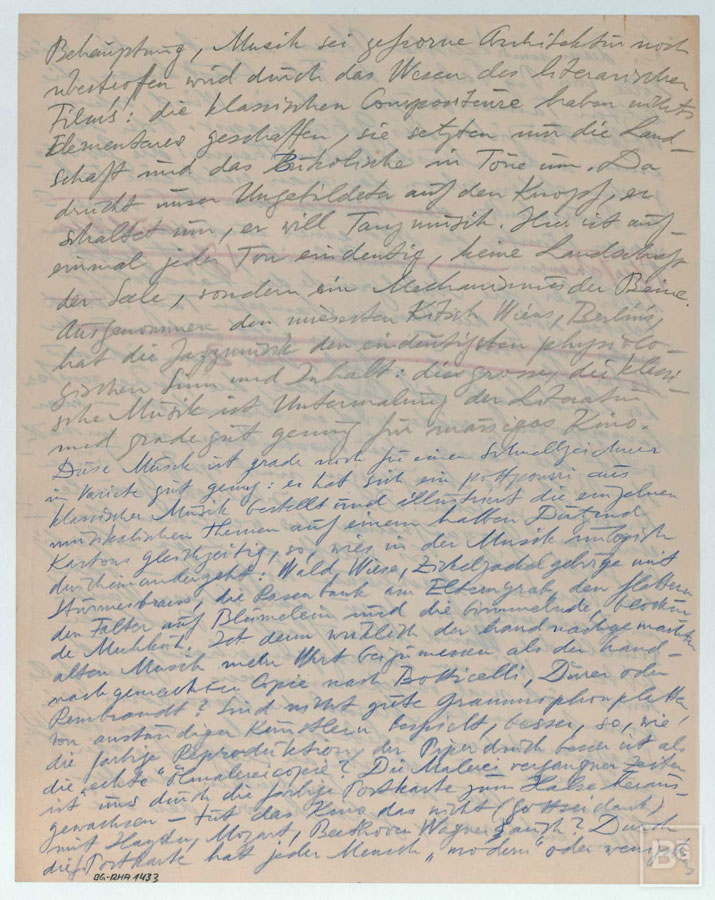 Behauptung, Musik sei gefrorne Architektur noch
übertroffen wird durch das Wesen des literarischen
Films: die klassischen Compositeure haben nichts
Elementares geschaffen, sie setzten nur die Land-
schaft und das Bukolische in Töne um. Da
druckt unser Ungebildeter auf den Knopf, er
schaltet um, er will Tanzmusik. Hier ist auf-
einmal jeder Ton eindeutig, keine Landschaft
der Seele, sondern ein Mechanismus der Beine.
Ausgenommen den miesesten Kitsch Wiens, Berlins,
hat die Jazzmusik den eindeutigsten physiolo-
gischen Sinn und Inhalt: die grosse, die klassi-
sche Musik ist Untermalung der Literatur
und grade gut genug für mässiges Kino.
Diese Musik ist grade noch für einen Schnellzeichner
in Varieté gut genug: er hat sich ein pottpourri aus
klassischer Musik bestellt und illustriert die einzelnen
musikalischen Themen auf einem halben Dutzend
Kartons gleichzeitig, so, wies in der Musik unlogisch
durcheinandergeht: Wald, Wiese, Zickelzackelgebirge mit
Sturmesbraus, die Rasenbank am Elterngrab, den flattern
den Falter auf Blümelein und die bimmelnde, blöcken
de Muhkuh. Ist denn wirklich der hand nachgemachten
alten Musik mehr Wert beizumessen als der hand-
nachgemachten Copie nach Botticelli, Dürer oder
Rembrandt? Sind nicht gute Grammophonplatten,
von anständigen Künstlern bespielt, besser, so, wie
die farbige Reproduktion der Piperdrucke besser ist als
die „echte" Ölmalereicopie? Die Malerei vergangner Zeiten
ist uns durch die farbige Postkarte zum Halse heraus-
gewachsen – tut das Kino das nicht (Gottseidank)
mit Haydn, Mozart, Beethoven Wagner auch? Durch
die Postkarte hat jeder Mensch „modern" oder wenig
BG-RHA 1433
BG